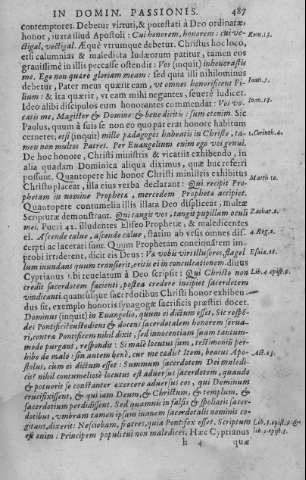 IN DOMIN. PASSIONIS. 487
contemptores. Debetur virtuti, & potestati à Deo ordinatæ
honor, iuxta illud Apostoli: Cui honorem, honorem: cui ve- Rom.13.
ctigal, vectigal. Æquè vtrumque debetur. Christus hoc loco,
etsi calumnias & maledicta Iudæorum patitur, tamen eos
grauissimè in illis peccasse ostendit: Vos (inquit) inhonorastis
me. Ego non quæro gloriam meam: sed quia illi nihilominus
debetur, Pater meus quæret eam, vt omnes honorificent Fi- Ioan.5.
lium: & ita quærit, vt eam mihi negantes, seuerè iudicet.
Ideo alibi discipulos eum honorantes commendat: Vos vo- Ioan.13.
catis me, Magister & Domine & bene dicitis: sum etenim. Sic
Paulus, quum à suis se non eo quo par erat honore habitum
cerneret, etsi (inquit) mille pædagogos habeatis in Christo, ta- 1.Corinth.4.
men non multos Patres. Per Euangelium enim ego vos genui.
De hoc honore, Christi ministris & vicariis exhibendo, in
alia quadam Dominica aliquà diximus, quæ huc referri
possunt. Quantopere hic honor Christi ministris exhibitus
Christo placeat, illa eius verba declarant: Qui recipit Pro- Matth.10.
phetam in nomine Propheta, mercedem Propheta accipiet.
Quantopere contumelia illis illata Deo displiceat, multæ
Scripturæ demonstrant. Qui tangit vos, tangit pupillam oculi Zachar.2.
mei. Pueri 42. illudentes Eliseo Prophetæ, & maledicentes
ei. Ascende calue, ascende calue, statim ab vrsis omnes dis- 4.Reg.2.
cerpti ac lacerati sunt. Quum Prophetam concionantem im-
probi irriderent, dicit eis Deus: Væ vobis viri illusores, flagel- Esaiæ.28.
lum inundans quum transierit, eritis ei in conculcationem. diuus
Cyprianus tibi reuelatum à Deo scripsit: Qui Christo non Lib.4.epist.9.
credit sacerdotem facienti, postea credere incipiet sacerdotem
vindicanti. quamcúsque sacerdotibus Christi honor exhiben-
dus sit, exemplo honoris synagogæ sacrificis præstiti docet.
Dominus (inquit) in Euangelio, quum ei dictum esset, Sic respon-
des Pontifici? custodiens & docens sacerdotalem honorem serua-
ri, contra Pontificem nihil dixit, sed innocentiam suam tantum-
modo purgans, respondit: Si malè locutus sum, testimonium per-
hibe de malo: sin autem benè, cur me cædis? Item, beatus Apo- Act.23.
stolus, cum ei dictum esset: Summum sacerdotem Dei maledi-
cis? nihil contumeliosè locutus est aduersus sacerdotem, quando
& potuerit se constanter exercere aduersus eos, qui Dominum
crucifixissent, & qui iam Deum, & Christum, & templum, &
sacerdotium perdidissent. Sed quamuis in falsis & spoliatis sacer-
dotibus, vmbram tamen ipsam inanem sacerdotalis nominis co-
gitans, dixerit: Nesciebam, fratres, quia Pontifex esset. Scriptum
est enim: Principem populi tui non maledices. Hæc Cyprianus
h 4 quæ